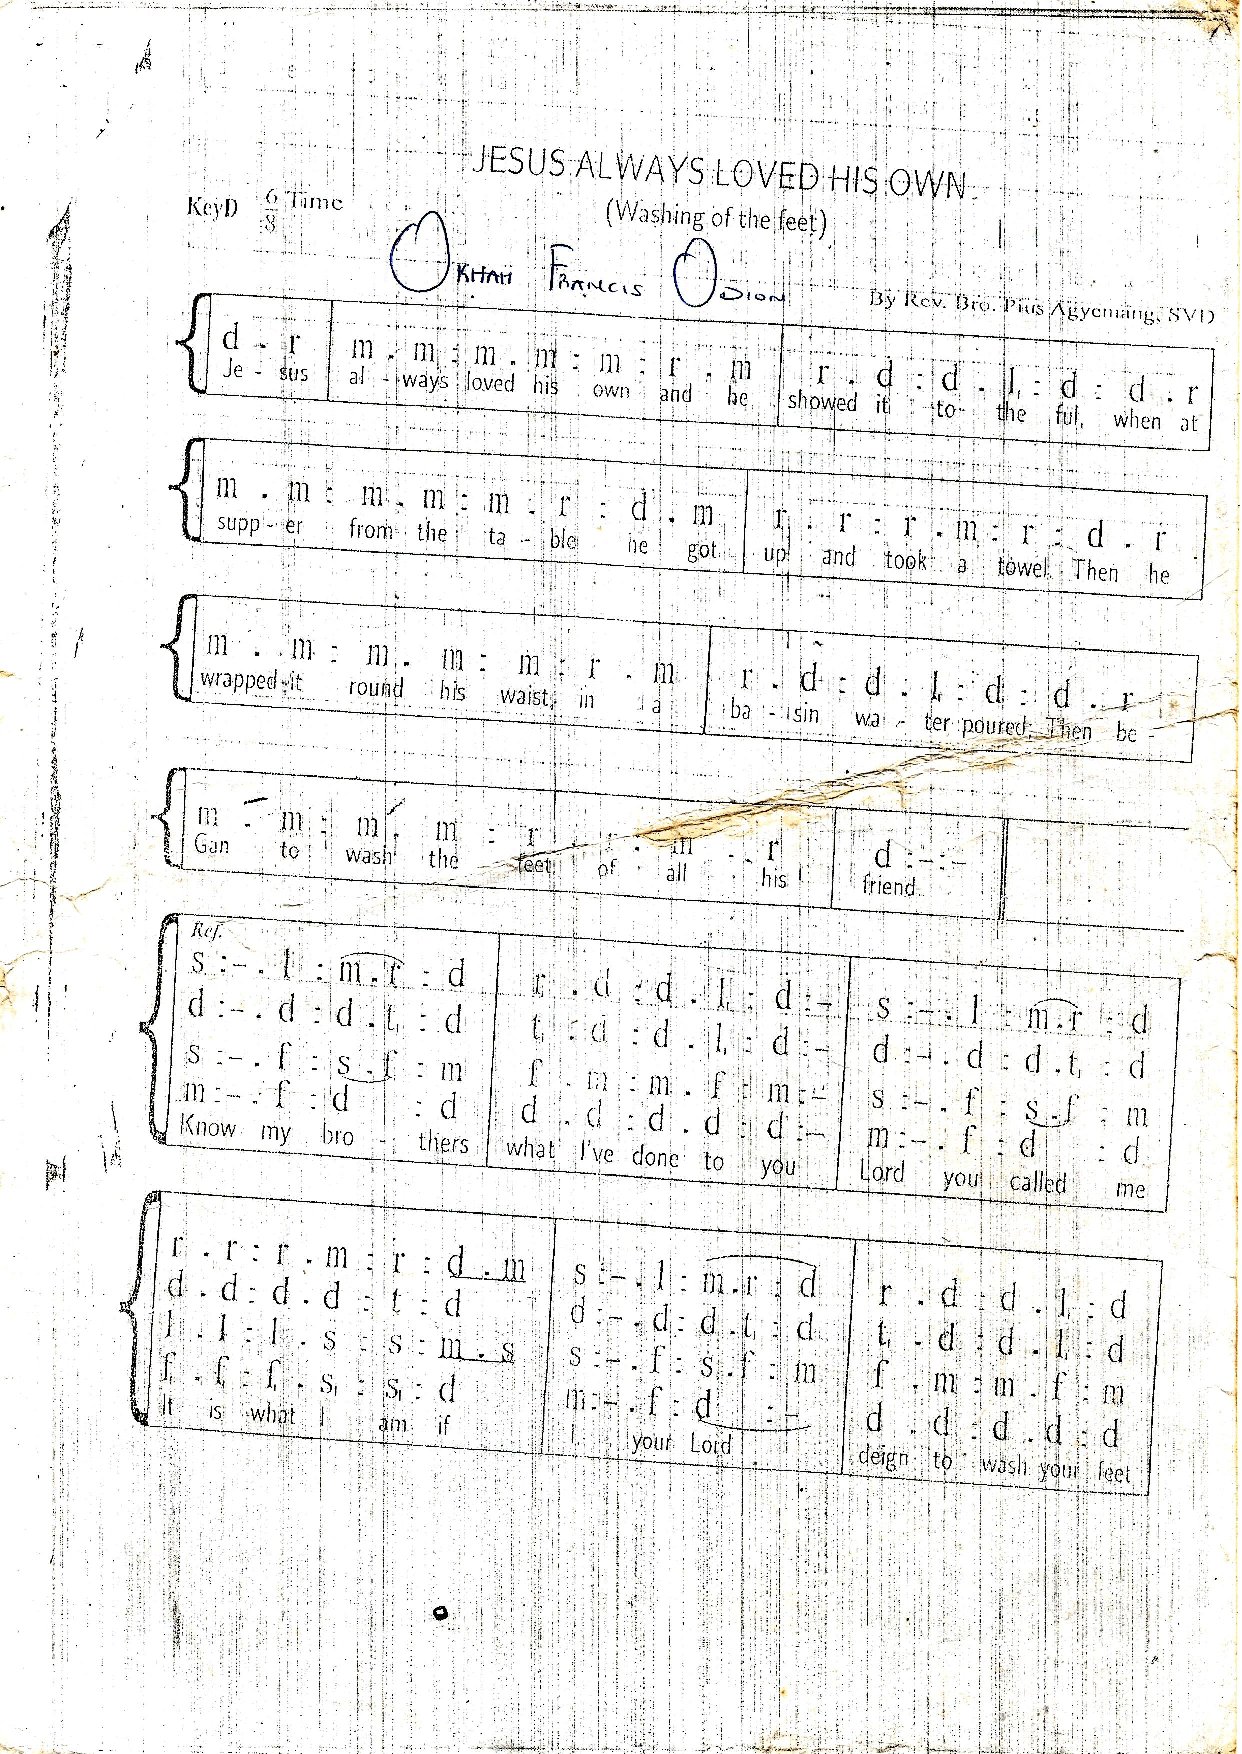 JESUS ALWAYS LOVED HIS OWN
KeyD 6/8 Time
(Washing of the feet)
OKHAH FRANCIS ODION
By Rev. Bro. Pius Agyemang, SVD
d . r | m . m : m . m : m : r . m | r . d : d . l, : d : d . r
Je - sus al - ways loved his own and he showed it to the ful, when at
m . m : m . m : m . r : d . m | r . r : r . m : r : d . r
supp - er from the ta - ble he got up and took a towel Then he
m . m : m . m : m : r . m | r . d : d . l, : d : d . r
wrapped it round his waist, in a ba - sin wa - ter poured, Then be -
m . m : m . m : r . r : m . r | d : - : -
Gan to wash the feet of all his friend.
Ref.
s : - . l : m . r : d | r . d : d . l, : d : - | s : - . l : m . r : d
d : - . d : d . t, : d | t, . d : d . l, : d : - | d : - . d : d . t, : d
s : - . f : s . f : m | f . m : m . f : m : - | s : - . f : s . f : m
m : - . f : d : d | d . d : d . d : d : - | m : - . f : d : d
Know my bro - thers what I've done to you Lord you called me
r . r : r . m : r : d . m | s : - . l : m . r : d | r . d : d . l, : d
d . d : d . d : t : d | d : - . d : d . t, : d | t, . d : d . l, : d
l . l : l . s : s : m . s | s : - . f : s . f : m | f . m : m . f : m
f, . f, : f, . s, : s, : d | m : - . f : d : - | d . d : d . d : d
It is what I am if I your Lord deign to wash your feet